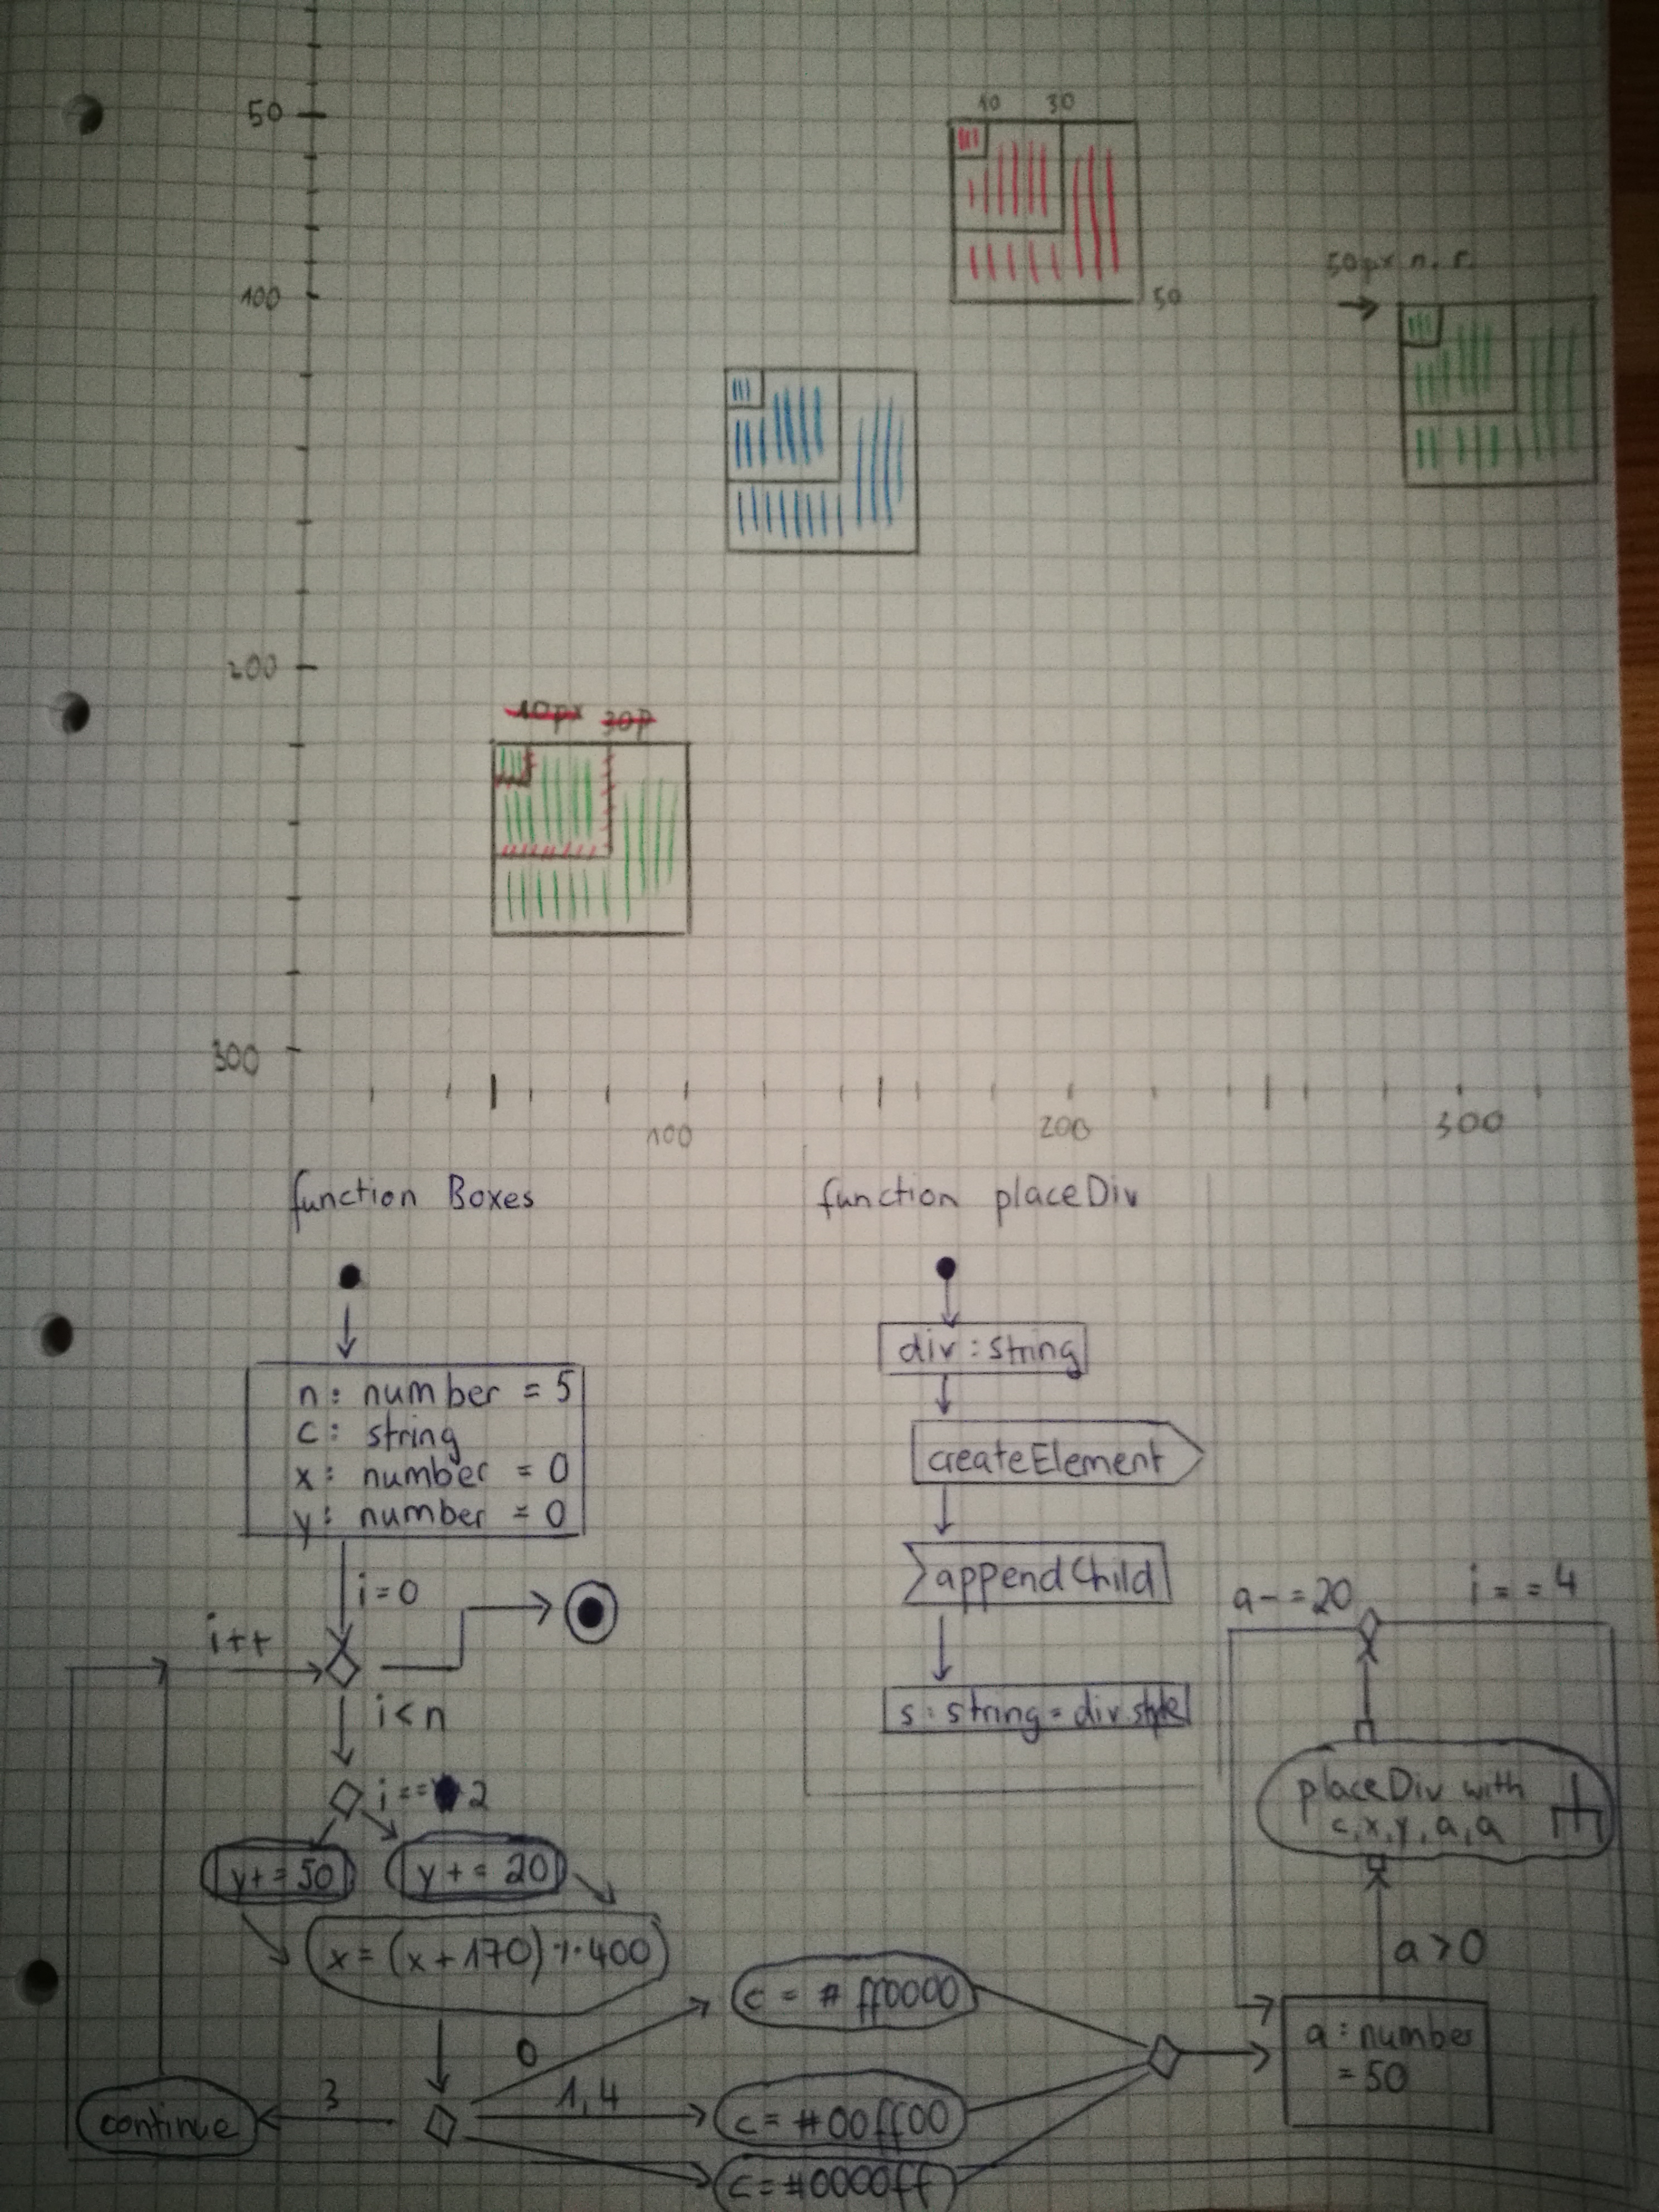 50
10 30
100
50
50px n. r.
200
10px 30p
300
100 200 300
function Boxes
n: number = 5
c: string
x: number = 0
y: number = 0
i=0
i++
i<n
i== 2
y+=50
y+=20
x=(x+170)%400
0
3
1,4
continue
c = #ff0000
c = #00ff00
c=#0000ff
function placeDiv
div:string
createElement
appendChild
s:string=div.style
a-=20
i==4
placeDiv with
c,x,y,a,a
a>0
a:number
=50